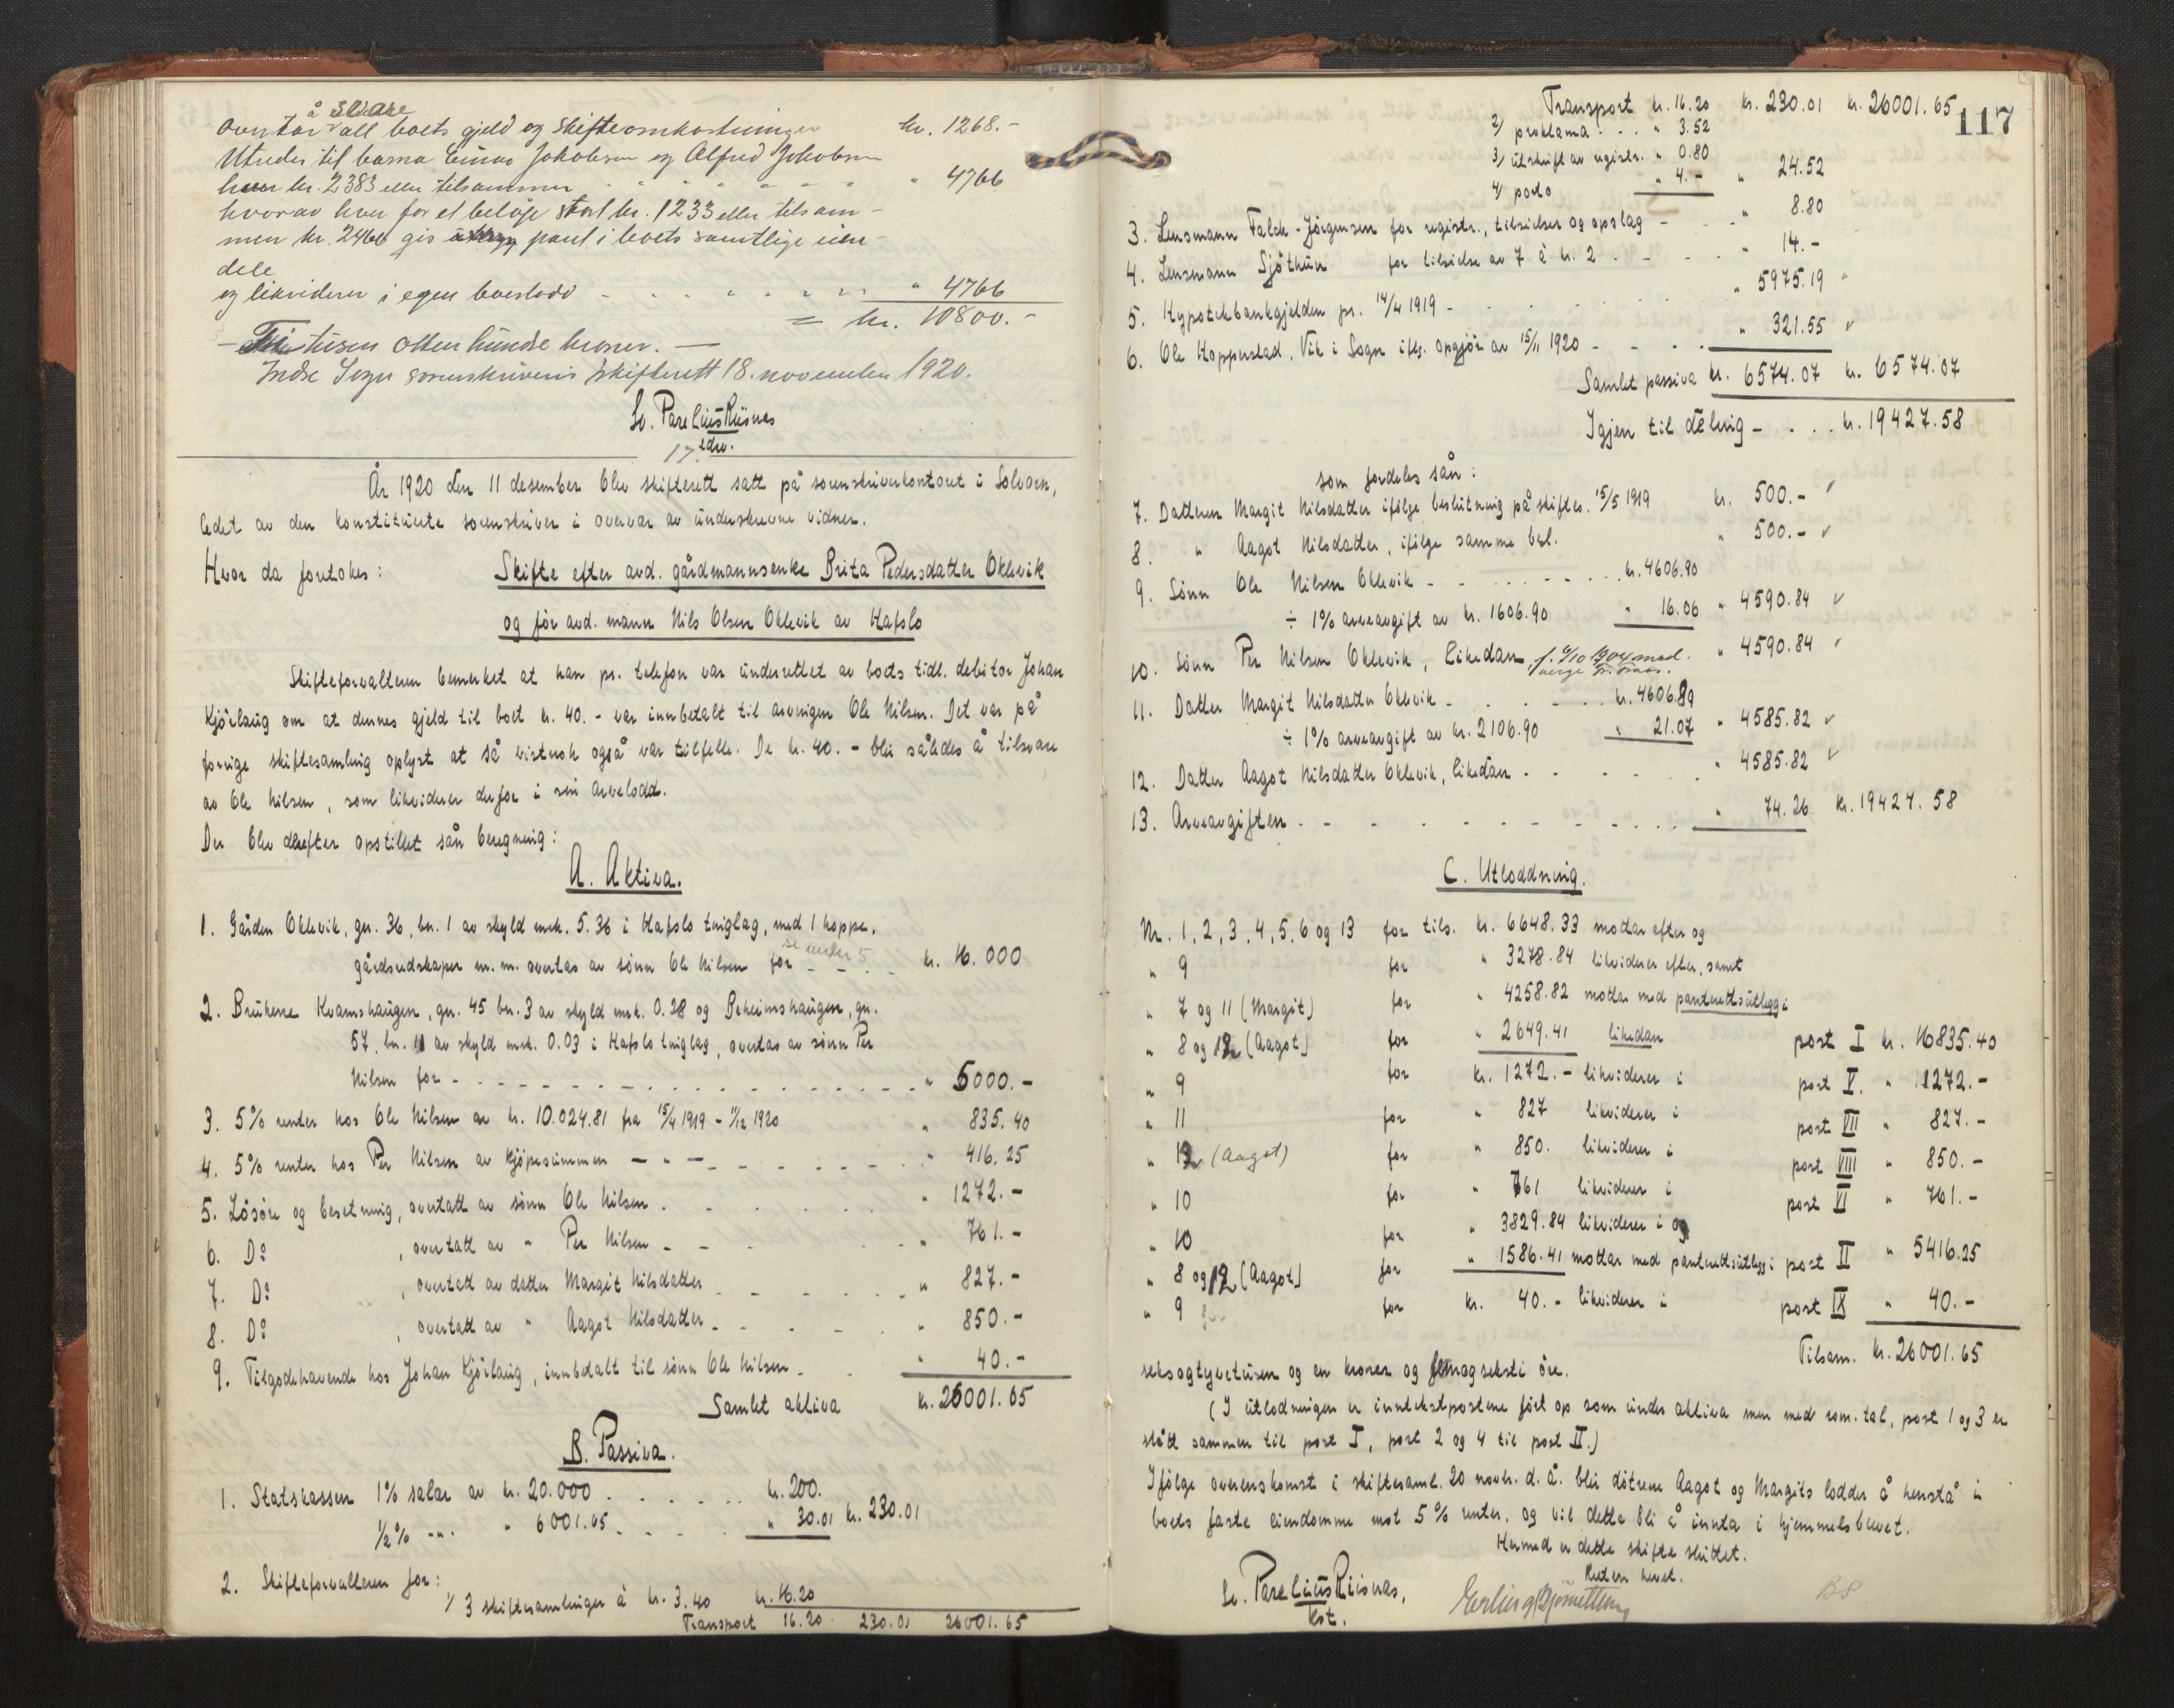 å svare
overtar all boets gjeld og skifteomkostninger kr. 1268.-
Utreder til barna Einar Jakobsen og Alfred Jakobsen
hver kr. 2383 eller tilsammen " 4766
hvorav hver for et beløp stort kr. 1233 eller tilsam-
men kr. 2466 gis pant i boets samtlige eien-
dele
og likviderer i egen boeslodd - " 4766
= kr. 10800.-
- Titusen ottehundre kroner. -
Indre Sogn sorenskriveris skifterett 18. november 1920.
Sv. Parelius Riisnæs
edw.
17.
År 1920 den 11 desember blev skifterett satt på sorenskriverkontoret i Solvorn,
ledet av den konstituerte sorenskriver i overvær av underskrevne vidner.
Hvor da foretokes: Skifte efter avd. gårdmannsenke Brita Pedersdatter Oklevik
og før avd. mann Nils Olsen Oklevik av Hafslo
Skifteforvalteren bemerket at han pr. telefon var underrettet av boets tidl. debitor Johan
Kjørlaug om at dennes gjeld til boet kr. 40.- var innbetalt til arvingen Ole Nilsen. Det var på
forrige skiftesamling oplyst at så vistnok også var tilfelle. De kr. 40.- blir således å tilsvare
av Ole Nilsen, som likviderer derfor i sin arvelodd.
Der blev derefter opstillet sån beregning:
A. Aktiva.
1. Gården Oklevik, gn. 36, bn. 1 av skyld mrk. 5.36 i Hafslo tinglag, med 1 hoppe,
se under 5
gårdsredskaper m. m. overtas av sønn Ole Nilsen for - kr. 16.000
2. Brukene Kvamshaugen, gn. 45 bn. 3 av skyld mrk. 0.28 og Beheimshaugen, gn.
57, bn. 11 av skyld mrk. 0.03 i Hafslo tinglag, overtas av sønn Per
Nilsen for - " 5000.-
3. 5% renter hos Ole Nilsen av kr. 10.024.81 fra 15/4 1919 - 11/12 1920 " 835.40
4. 5% renter hos Per Nilsen av kjøpesummen — " — " 416.25
5. Løsøre og besetning, overtatt av sønn Ole Nilsen . " 1272.-
6. Do , overtatt av " Per Nilsen - " 761.-
7. Do , overtatt av datter Margit Nilsdatter - " 827.-
8. Do , overtatt av " Aagot Nilsdatter - " 850.-
9. Tilgodehavende hos Johan Kjørlaug, innbetalt til sønn Ole Nilsen - " 40.-
Samlet aktiva kr. 26001.65
B. Passiva.
1. Statskassen 1% salær av kr. 20.000 . kr. 200.
1/2% " " 6001.65 . " 30.01 kr. 230.01
2. Skifteforvalteren for:
1/ 3 skiftesamlinger à kr. 3.40 kr. 16.20
Transport 16.20 230.01 26001.65
117
Transport kr. 16.20 kr. 230.01 kr. 26001.65
2/ proklama . . . " 3.52
3/ utskrift av registr. " 0.80
4/ porto " 4.- " 24.52
3. Lensmann Falch-Jørgensen for registr., tilsielser og opslag - " 8.80
4. Lensmann Sjøthun for tilsielse av 7 à kr. 2 . " 14.-
5. Hypotekbankgjelden pr. 14/4 1919 - " 5975.19
6. Ole Hopperstad, Vik i Sogn iflg. opgjør av 15/11 1920 - " 321.55
Samlet passiva kr. 6574.07 kr. 6574.07
Igjen til deling - . . . kr. 19427.58
som fordeles sån:
7. Datteren Margit Nilsdatter ifølge beslutning på skiftes. 15/5 1919 kr. 500.-
8. " Aagot Nilsdatter, ifølge samme besl. " 500.-
9. Sønn Ole Nilsen Oklevik - kr. 4606.90
÷ 1% arveavgift av kr. 1606.90 " 16.06 " 4590.84
10. Sønn Per Nilsen Oklevik, likedan, " 4590.84
11. Datter Margit Nilsdatter Oklevik - kr. 4606.89
÷ 1% arveavgift av kr. 2106.90 " 21.07 " 4585.82
12. Datter Aagot Nilsdatter Oklevik, likedan . " 4585.82
13. Arveavgiften - " 74.26 kr. 19427.58
C. Utloddning.
Nr. 1, 2, 3, 4, 5, 6 og 13 for tils. kr. 6648.33 mottar efter og
" 9 for " 3278.84 likviderer efter, samt
" 7 og 11 (Margit) for " 4258.82 mottar med panterettsutlegg i
" 8 og 12 (Aagot) for " 2649.41 likedan post I kr. 16835.40
" 9 for kr. 1272.- likviderer i post V. " 1272.-
" 11 for " 827 likviderer i post VII " 827.-
" 12 (Aagot) for " 850. likviderer i post VIII " 850.-
" 10 for " 761 likviderer i post VI " 761.-
" 10 for " 3829.84 likviderer i og
" 8 og 12 (Aagot) for " 1586.41 mottar med panterettsutlegg i post II " 5416.25
" 9 for kr. 40.- likviderer i post IX " 40.-
Tilsam. kr. 26001.65
seksogtyvetusen og en kroner og femogseksti øre.
(I utlodningen er inntektspostene ført op som under aktiva men med rom. tal, post 1 og 3 er
slått sammen til post I, post 2 og 4 til post II.)
Ifølge overenskomst i skiftesaml. 20 novbr. d. å. blir døtrene Aagot og Margits lodder å henstå i
boets faste eiendomme mot 5% renter, og vil dette bli å innta i hjemmelsbrevet.
Hermed er dette skifte sluttet.
Retten hevet.
Sv. Parelius Riisnæs,
kst.
Erling Bjørnetun
BS